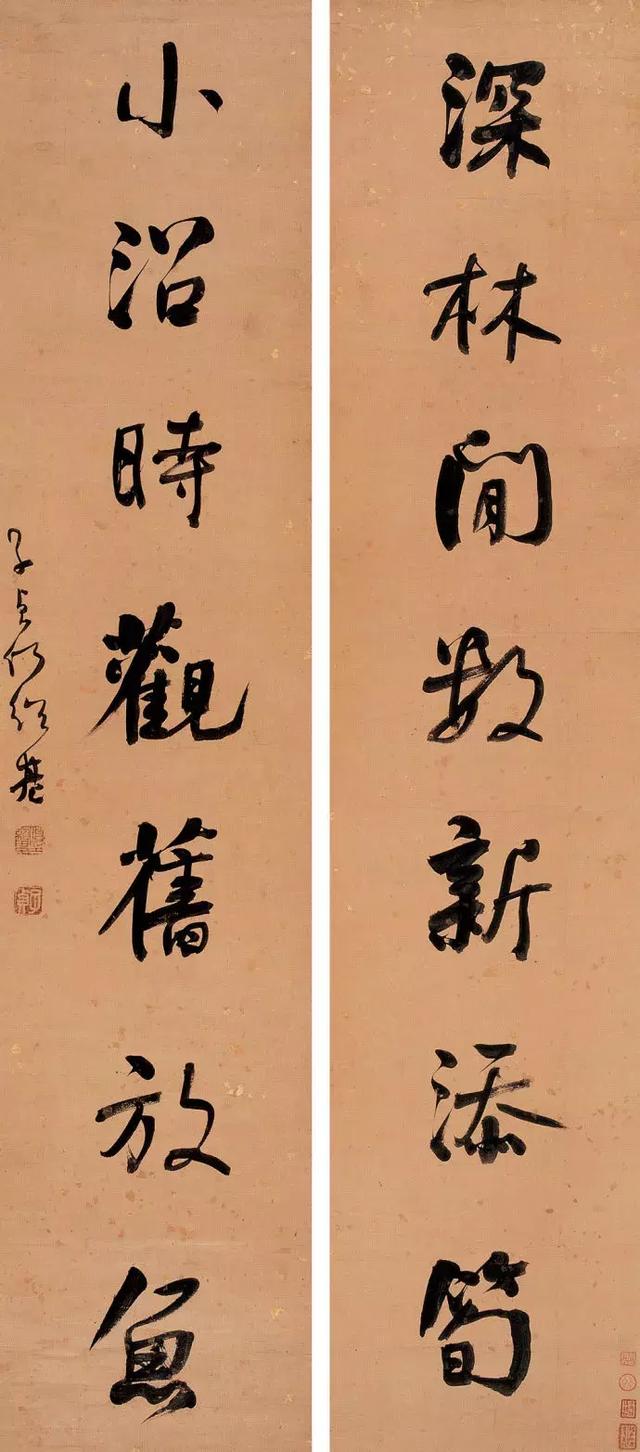 深林閒數新添筍
小沼時觀舊放魚
子貞何紹基